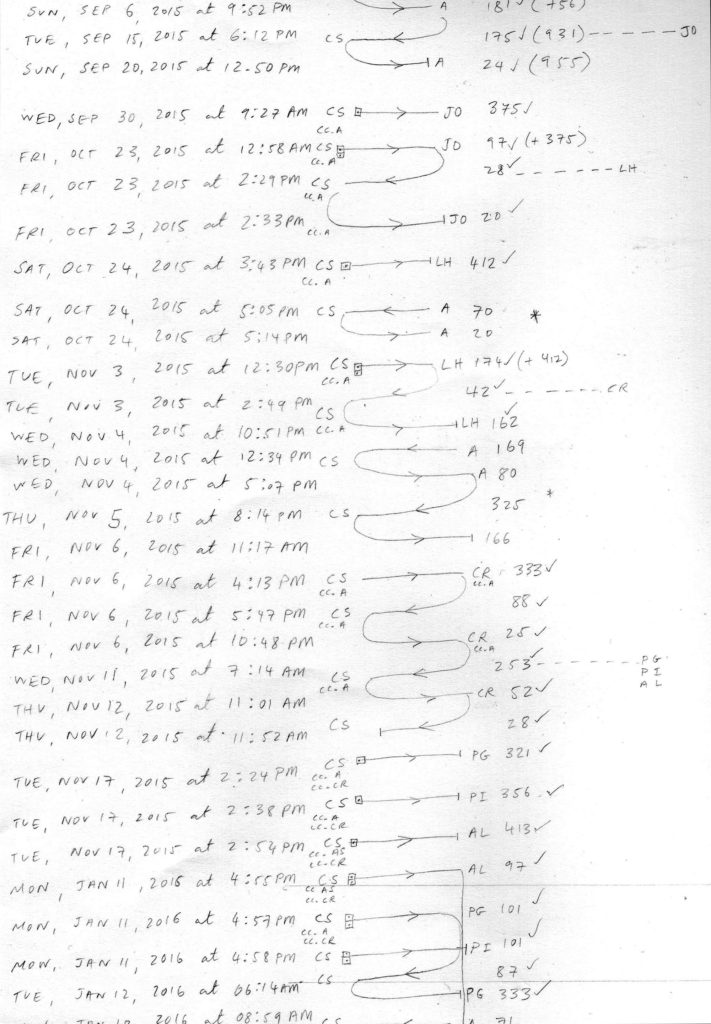 SUN, SEP 6, 2015 at 9:52PM A 181 ✓ (756)
TUE, SEP 15, 2015 at 6:12PM CS 175 ✓ (931) ----- JO
SUN, SEP 20, 2015 at 12.50PM A 24 ✓ (955)
WED, SEP 30, 2015 at 9:27AM CS JO 375 ✓
cc.A
FRI, OCT 23, 2015 at 12:58AM CS JO 97 ✓ (+375)
cc.A
FRI, OCT 23, 2015 at 2:29PM CS 28 ✓ ------ LH
cc.A
FRI, OCT 23, 2015 at 2:33PM JO 20 ✓
cc.A
SAT, OCT 24, 2015 at 3:43PM CS LH 412 ✓
cc.A
SAT, OCT 24, 2015 at 5:05PM CS A 70 *
SAT, OCT 24, 2015 at 5:14PM A 20
TUE, NOV 3, 2015 at 12:30PM CS LH 174 ✓ (+412)
cc.A
TUE, NOV 3, 2015 at 2:49PM CS 42 ✓ ------ CR
WED, NOV 4, 2015 at 10:51PM cc.A LH 162 ✓
WED, NOV 4, 2015 at 12:34PM CS A 169
WED, NOV 4, 2015 at 5:07PM A 80
THU, NOV 5, 2015 at 8:14PM CS 325 *
FRI, NOV 6, 2015 at 11:17AM 166
FRI, NOV 6, 2015 at 4:13PM CS CR 333 ✓
cc.A cc.A
FRI, NOV 6, 2015 at 5:47PM CS 88 ✓
cc.A
FRI, NOV 6, 2015 at 10:48PM CR 25 ✓
cc.A
WED, NOV 11, 2015 at 7:14AM CS 253 ✓ ------ PG
cc.A PI
AL
THU, NOV 12, 2015 at 11:01AM CR 52 ✓
THU, NOV 12, 2015 at 11:52AM CS 28 ✓
TUE, NOV 17, 2015 at 2:24PM CS PG 321 ✓
cc.A
cc.CR
TUE, NOV 17, 2015 at 2:38PM CS PI 356 ✓
cc.A
cc.CR
TUE, NOV 17, 2015 at 2:54PM CS AL 413 ✓
cc.AS
cc.CR
MON, JAN 11, 2015 at 4:55PM CS AL 97 ✓
cc AS
cc.CR
MON, JAN 11, 2016 at 4:57PM CS PG 101 ✓
cc.A
cc.CR
MON, JAN 11, 2016 at 4:58PM CS PI 101 ✓
CS 87 ✓
TUE, JAN 12, 2016 at 06:14AM PG 333 ✓
JAN 2016 at 08:59AM CS A 71